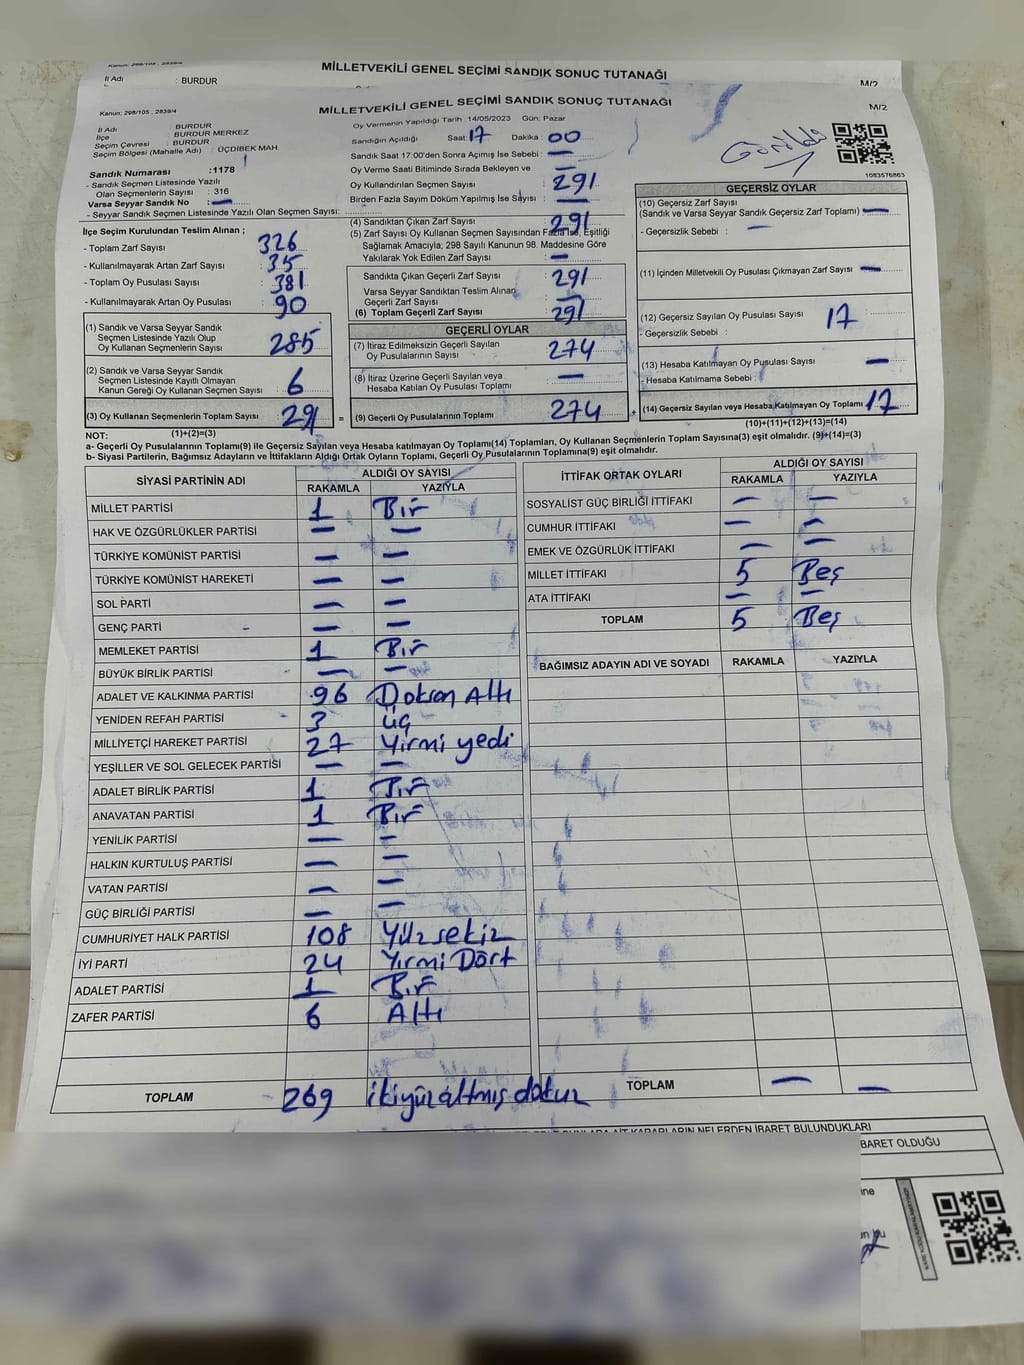 Kanun; 298/105 , 2839/4
MİLLETVEKİLİ GENEL SEÇİMİ SANDIK SONUÇ TUTANAĞI
İl Adı : BURDUR
M/2
Kanun; 298/105 , 2839/4
MİLLETVEKİLİ GENEL SEÇİMİ SANDIK SONUÇ TUTANAĞI
M/2
İl Adı : BURDUR
İlçe : BURDUR MERKEZ
Seçim Çevresi : BURDUR
Seçim Bölgesi (Mahalle Adı) : ÜÇDİBEK MAH.
Oy Vermenin Yapıldığı Tarih : 14/05/2023 Gün: Pazar
Sandığın Açıldığı Saat: 17 Dakika : 00
Sandık Saat 17.00'den Sonra Açımış İse Sebebi : —
Oy Verme Saati Bitiminde Sırada Bekleyen ve
Oy Kullandırılan Seçmen Sayısı : —
Birden Fazla Sayım Döküm Yapılmış İse Sayısı : 291
Görüldü
1083576863
Sandık Numarası :1178
- Sandık Seçmen Listesinde Yazılı
Olan Seçmenlerin Sayısı : 316
Varsa Seyyar Sandık No : —
- Seyyar Sandık Seçmen Listesinde Yazılı Olan Seçmen Sayısı:
İlçe Seçim Kurulundan Teslim Alınan ;
- Toplam Zarf Sayısı : 326
- Kullanılmayarak Artan Zarf Sayısı : 35
- Toplam Oy Pusulası Sayısı : 381
- Kullanılmayarak Artan Oy Pusulası : 90
(1) Sandık ve Varsa Seyyar Sandık
Seçmen Listesinde Yazılı Olup
Oy Kullanan Seçmenlerin Sayısı : 285
(2) Sandık ve Varsa Seyyar Sandık
Seçmen Listesinde Kayıtlı Olmayan
Kanun Gereği Oy Kullanan Seçmen Sayısı : 6
(3) Oy Kullanan Seçmenlerin Toplam Sayısı : 291 =
(1)+(2)=(3)
(4) Sandıktan Çıkan Zarf Sayısı : 291
(5) Zarf Sayısı Oy Kullanan Seçmen Sayısından Fazla ise, Eşitliği
Sağlamak Amacıyla; 298 Sayılı Kanunun 98. Maddesine Göre
Yakılarak Yok Edilen Zarf Sayısı : —
Sandıkta Çıkan Geçerli Zarf Sayısı : 291
Varsa Seyyar Sandıktan Teslim Alınan
Geçerli Zarf Sayısı : —
(6) Toplam Geçerli Zarf Sayısı : 291
GEÇERLİ OYLAR
(7) İtiraz Edilmeksizin Geçerli Sayılan
Oy Pusulalarının Sayısı : 274
(8) İtiraz Üzerine Geçerli Sayılan veya
Hesaba Katılan Oy Pusulası Toplamı : —
(9) Geçerli Oy Pusulalarının Toplamı : 274 +
GEÇERSİZ OYLAR
(10) Geçersiz Zarf Sayısı
(Sandık ve Varsa Seyyar Sandık Geçersiz Zarf Toplamı) : —
- Geçersizlik Sebebi : —
(11) İçinden Milletvekili Oy Pusulası Çıkmayan Zarf Sayısı : —
(12) Geçersiz Sayılan Oy Pusulası Sayısı : 17
- Geçersizlik Sebebi :
(13) Hesaba Katılmayan Oy Pusulası Sayısı : —
- Hesaba Katılmama Sebebi :
(14) Geçersiz Sayılan veya Hesaba Katılmayan Oy Pusulası Toplamı : 17
(10)+(11)+(12)+(13)=(14)
NOT:
a- Geçerli Oy Pusulalarının Toplamı(9) ile Geçersiz Sayılan veya Hesaba katılmayan Oy Toplamı(14) Toplamları, Oy Kullanan Seçmenlerin Toplam Sayısına(3) eşit olmalıdır. (9)+(14)=(3)
b- Siyasi Partilerin, Bağımsız Adayların ve İttifakların Aldığı Ortak Oyların Toplamı, Geçerli Oy Pusulalarının Toplamına(9) eşit olmalıdır.
SİYASİ PARTİNİN ADI ALDIĞI OY SAYISI
RAKAMLA YAZIYLA
MİLLET PARTİSİ 1 Bir
HAK VE ÖZGÜRLÜKLER PARTİSİ — —
TÜRKİYE KOMÜNİST PARTİSİ — —
TÜRKİYE KOMÜNİST HAREKETİ — —
SOL PARTİ — —
GENÇ PARTİ — —
MEMLEKET PARTİSİ 1 Bir
BÜYÜK BİRLİK PARTİSİ — —
ADALET VE KALKINMA PARTİSİ 96 Doksan Altı
YENİDEN REFAH PARTİSİ 3 üç
MİLLİYETÇİ HAREKET PARTİSİ 27 Yirmi yedi
YEŞİLLER VE SOL GELECEK PARTİSİ — —
ADALET BİRLİK PARTİSİ 1 Bir
ANAVATAN PARTİSİ 1 Bir
YENİLİK PARTİSİ — —
HALKIN KURTULUŞ PARTİSİ — —
VATAN PARTİSİ — —
GÜÇ BİRLİĞİ PARTİSİ — —
CUMHURİYET HALK PARTİSİ 108 Yüzsekiz
İYİ PARTİ 24 Yirmi Dört
ADALET PARTİSİ 1 Bir
ZAFER PARTİSİ 6 Altı
TOPLAM 269 ikiyüzaltmış dokuz
İTTİFAK ORTAK OYLARI ALDIĞI OY SAYISI
RAKAMLA YAZIYLA
SOSYALİST GÜÇ BİRLİĞİ İTTİFAKI — —
CUMHUR İTTİFAKI — —
EMEK VE ÖZGÜRLÜK İTTİFAKI — —
MİLLET İTTİFAKI 5 Beş
ATA İTTİFAKI — —
TOPLAM 5 Beş
BAĞIMSIZ ADAYIN ADI VE SOYADI RAKAMLA YAZIYLA
TOPLAM — —
NELERDEN İBARET BULUNDUKLARI
BARET OLDUĞU